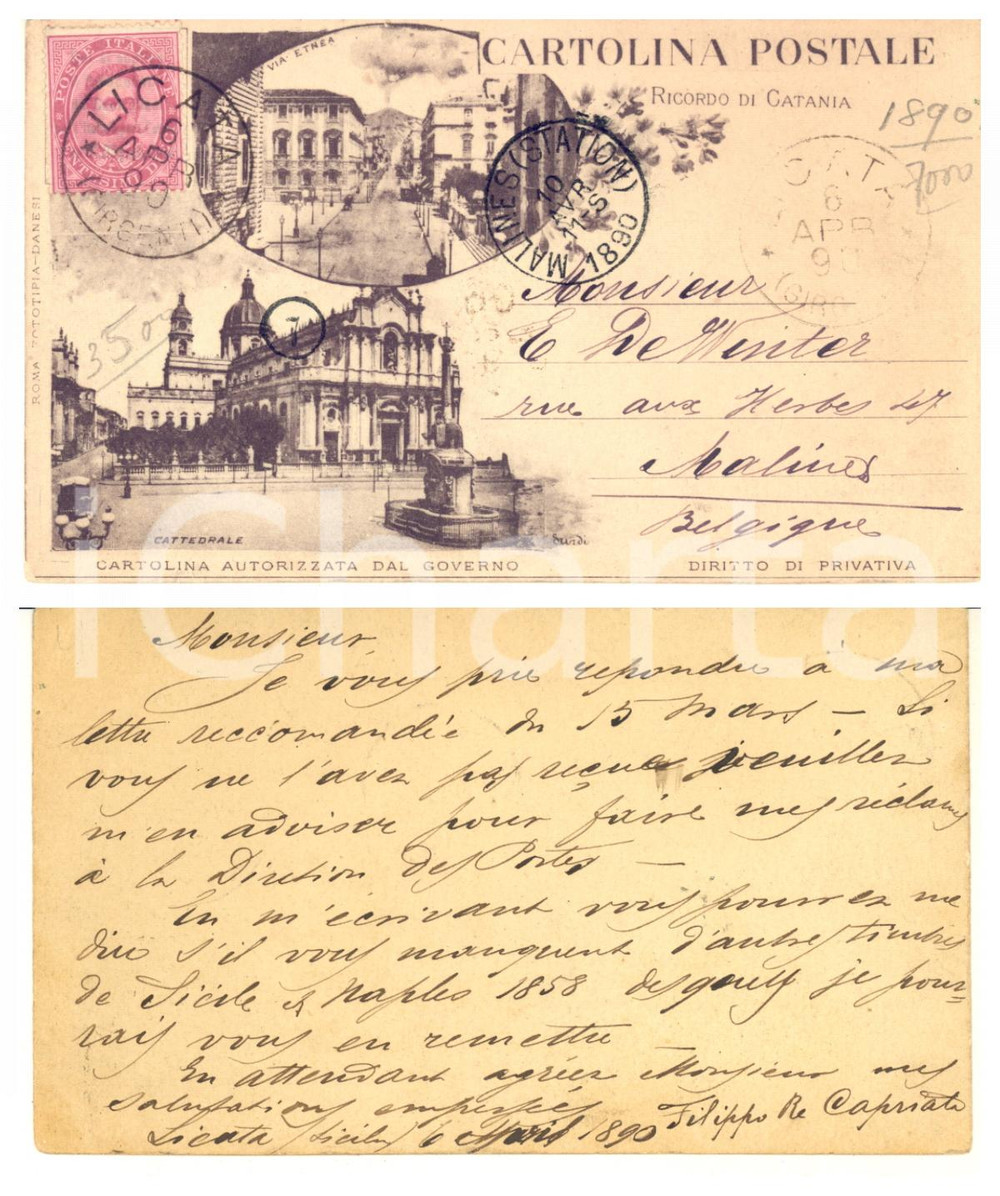 POSTE ITALIANE
LICATA
6
APR
90
(GIRGENTI)
VIA ETNEA
CARTOLINA POSTALE
RICORDO DI CATANIA
1890
MALINES (STATION)
10
AVR
11-S
1890
6
APR
9
ROMA FOTOTIPIA-DANESI
350
7
Monsieur
E De Winter
rue aux Herbes 47
Malines
Belgique
CATTEDRALE
CARTOLINA AUTORIZZATA DAL GOVERNO
DIRITTO DI PRIVATIVA
iCharta
Monsieur,
Je vous prie repondre à ma
lettre reccomandée du 15 Mars – Si
vous ne l'avez pas reçue veuillez
m'en adviser pour faire mes réclams
à la Diretion des Postes –
En m'écrivant vous pourrez me
dire s'il vous manquent d'autres timbres
de Sicile et Naples 1858 desquels je pour=
rais vous en remettre
En attendant agréez Monsieur mes
salutations empressées
Filippo Re Capriata
Licata (Sicile) 6 Avril 1890